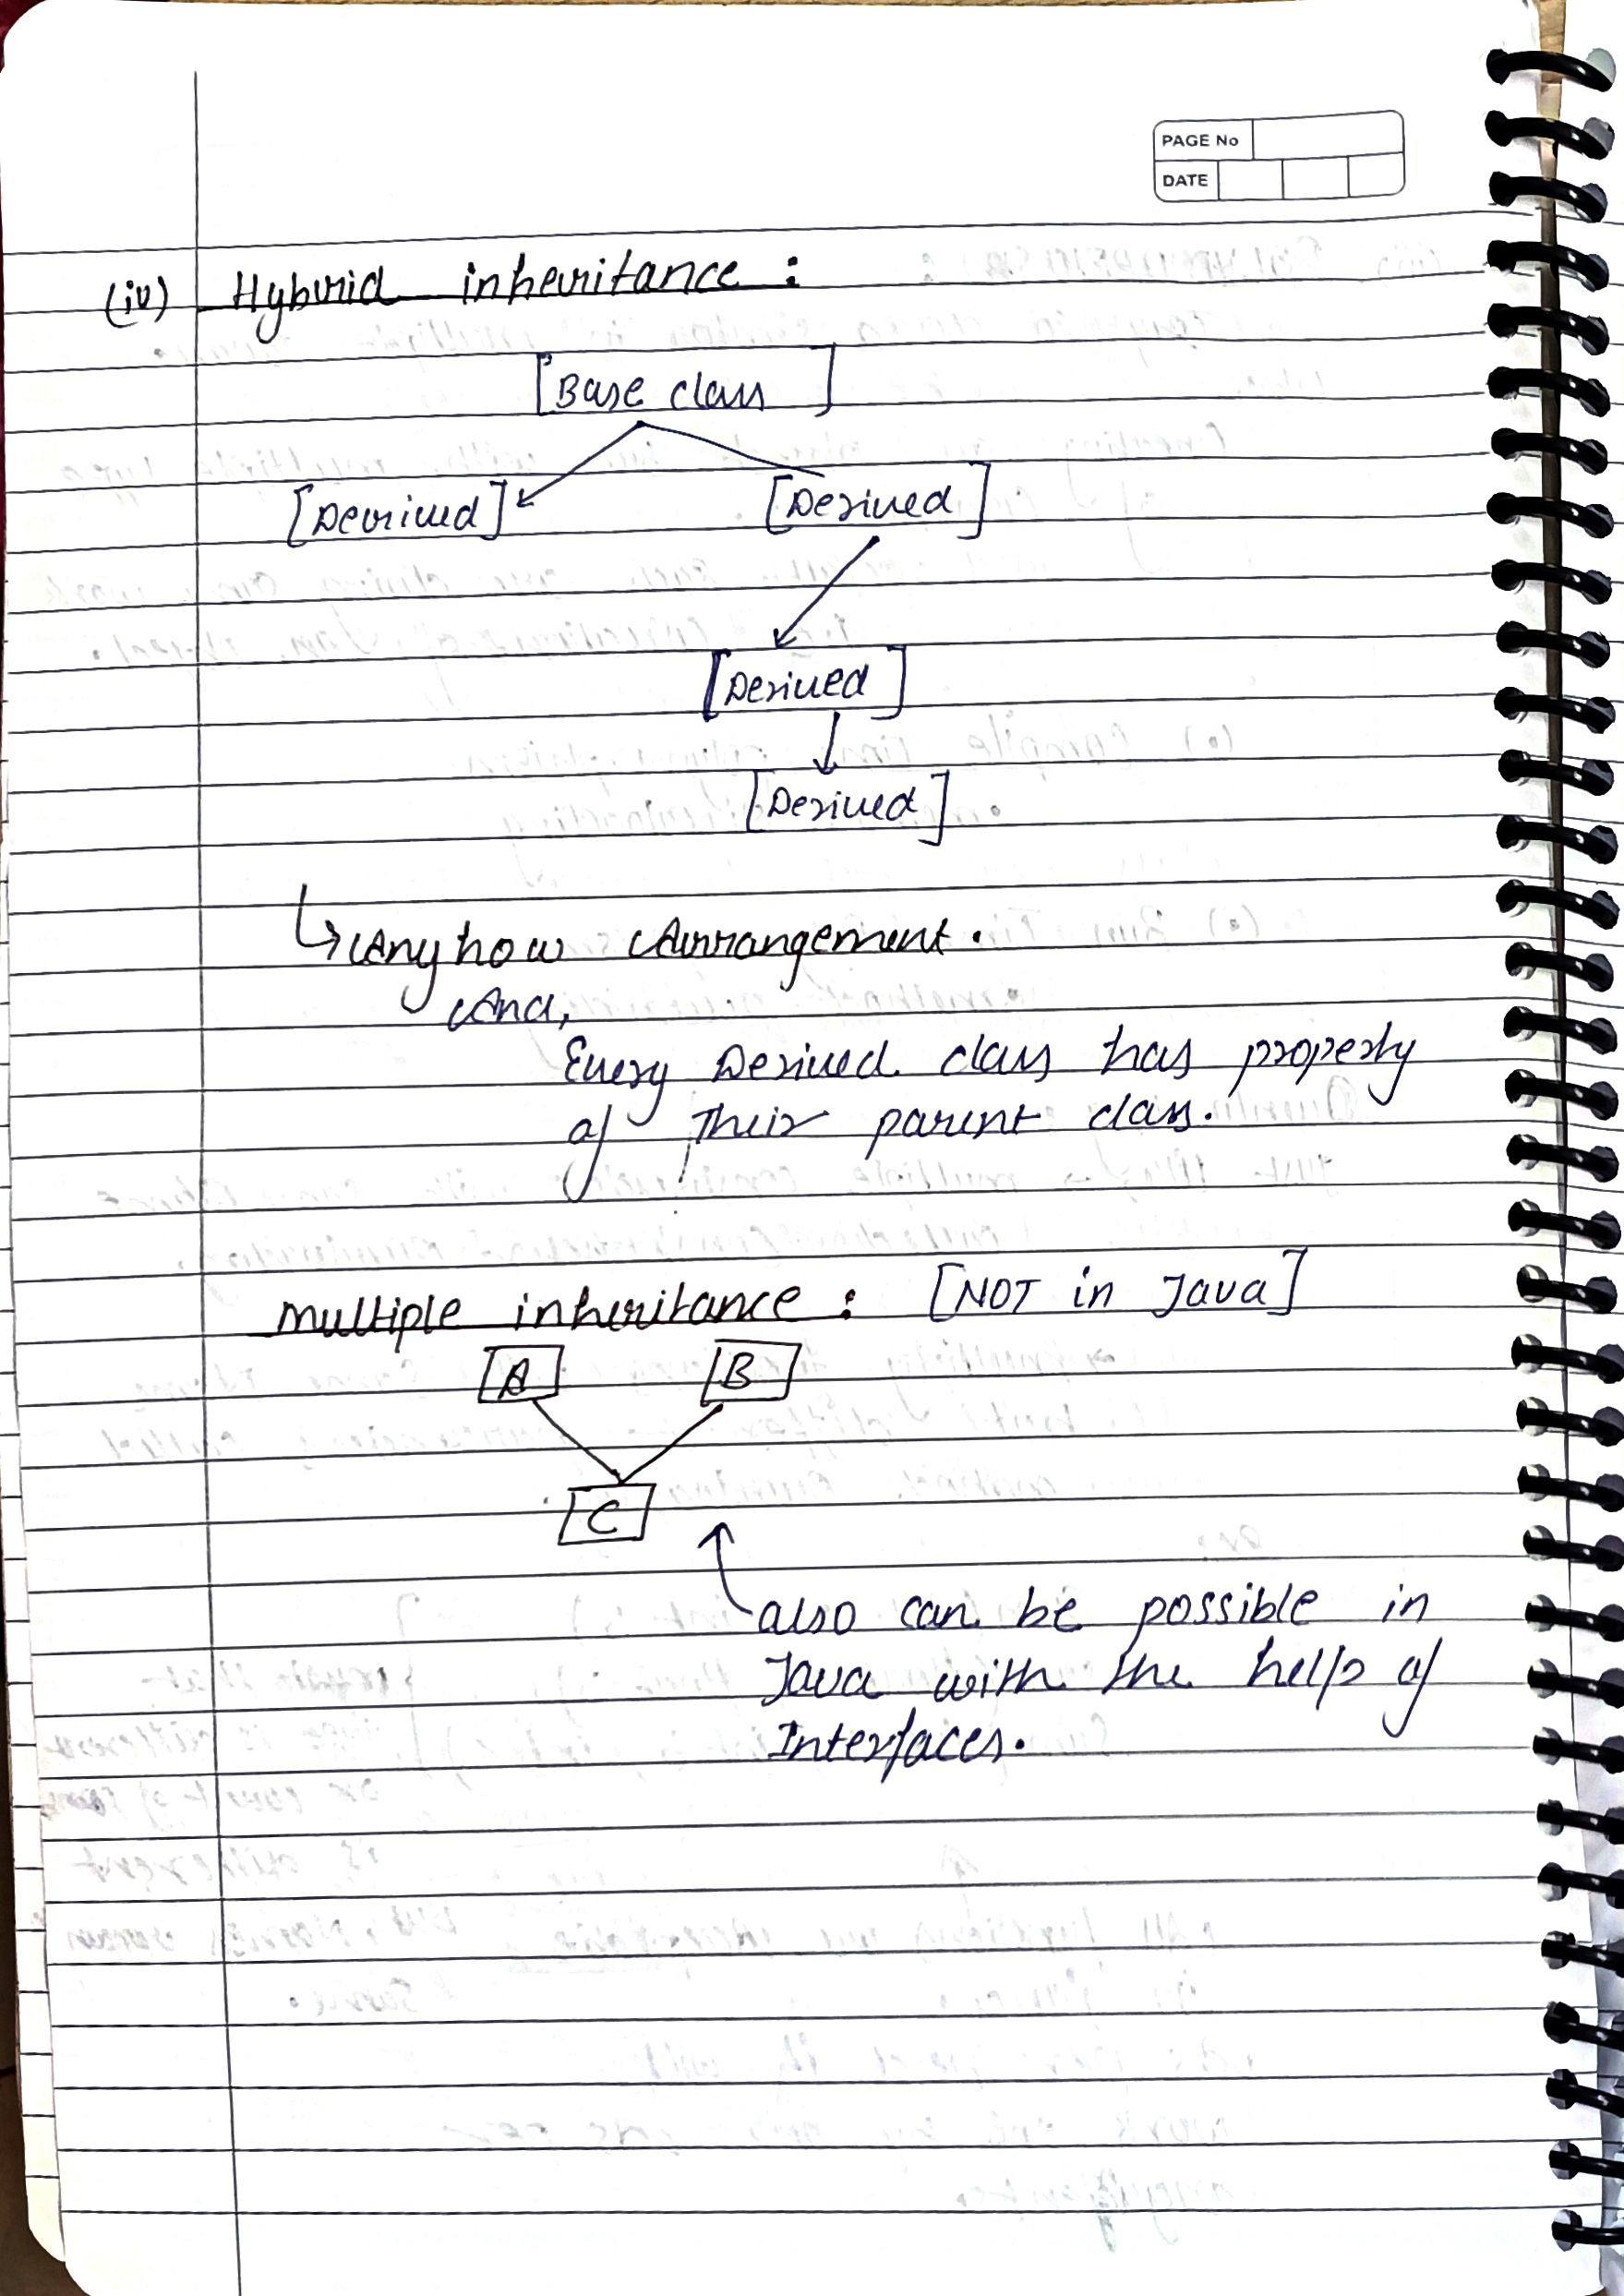 PAGE No
DATE
(iv) Hybrid inheritance :
[Base class ]
[Derived] [Derived]
[Derived]
[Derived]
↳ Anyhow Arrangement.
And,
Every Derived class has property
of Their parent class.
multiple inheritance : [NOT in Java]
A B
C
also can be possible in
Java with the help of
Interfaces.